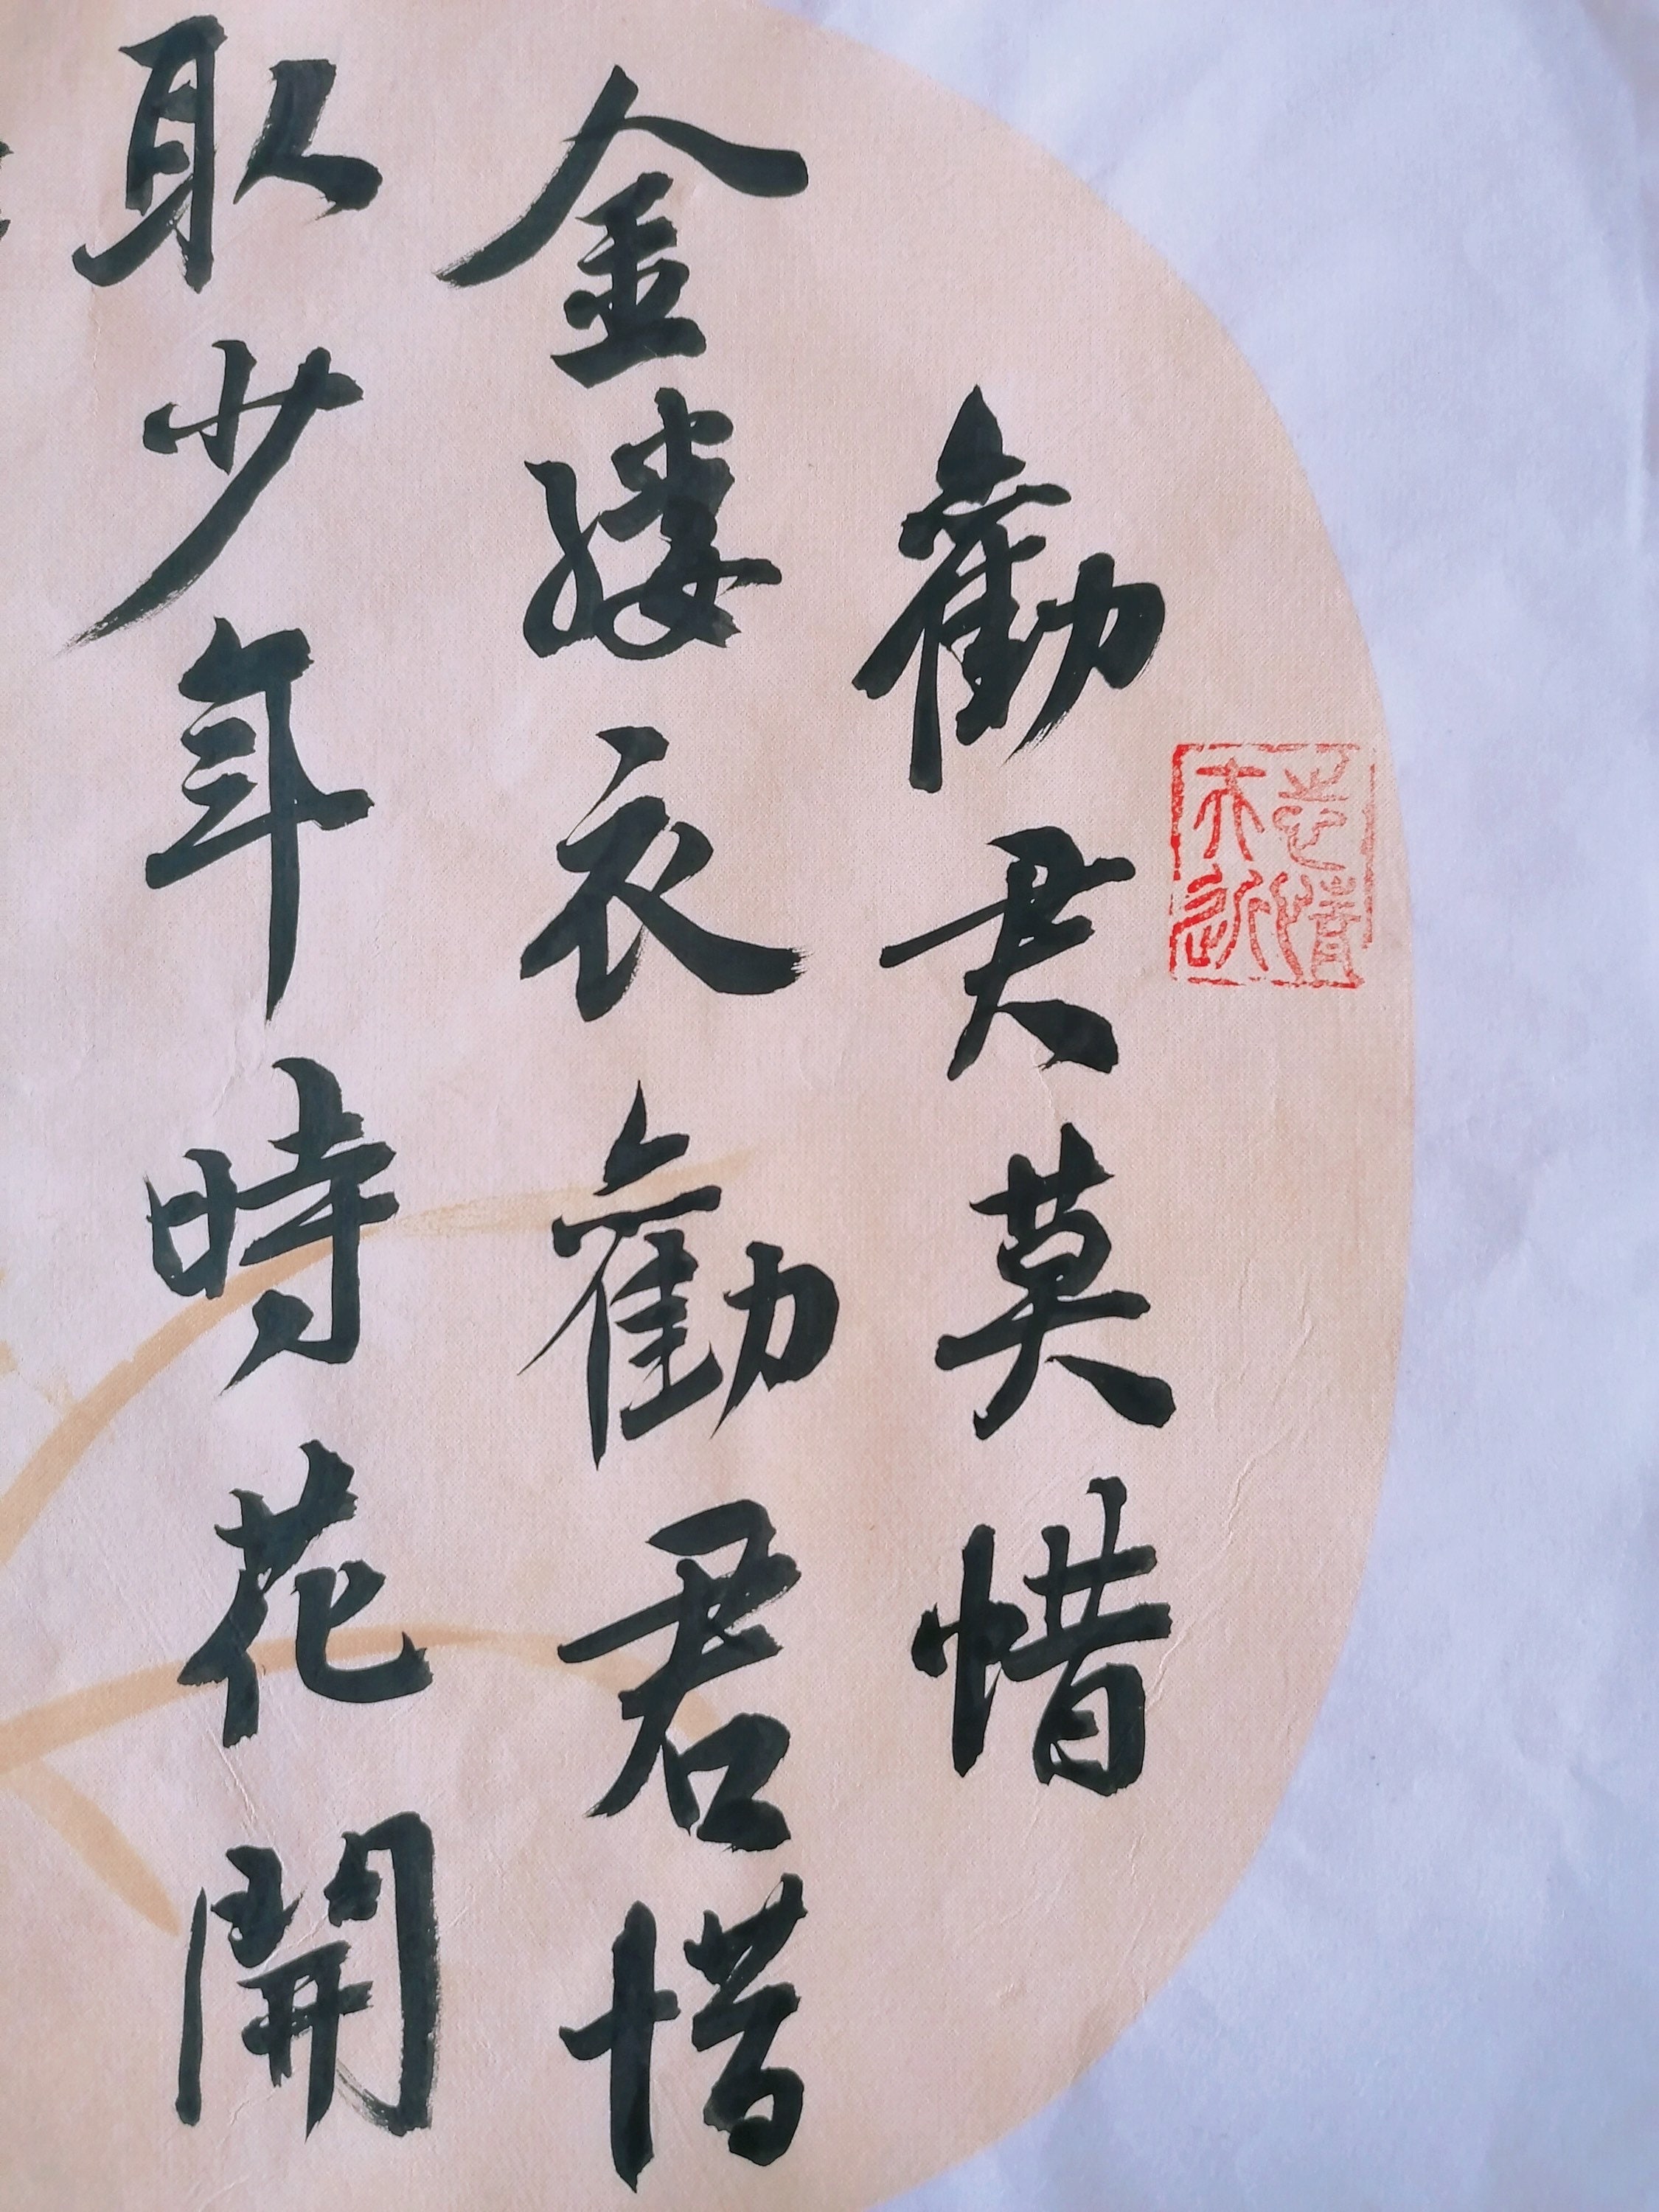 勸君莫惜
金縷衣勸君惜
取少年時花開